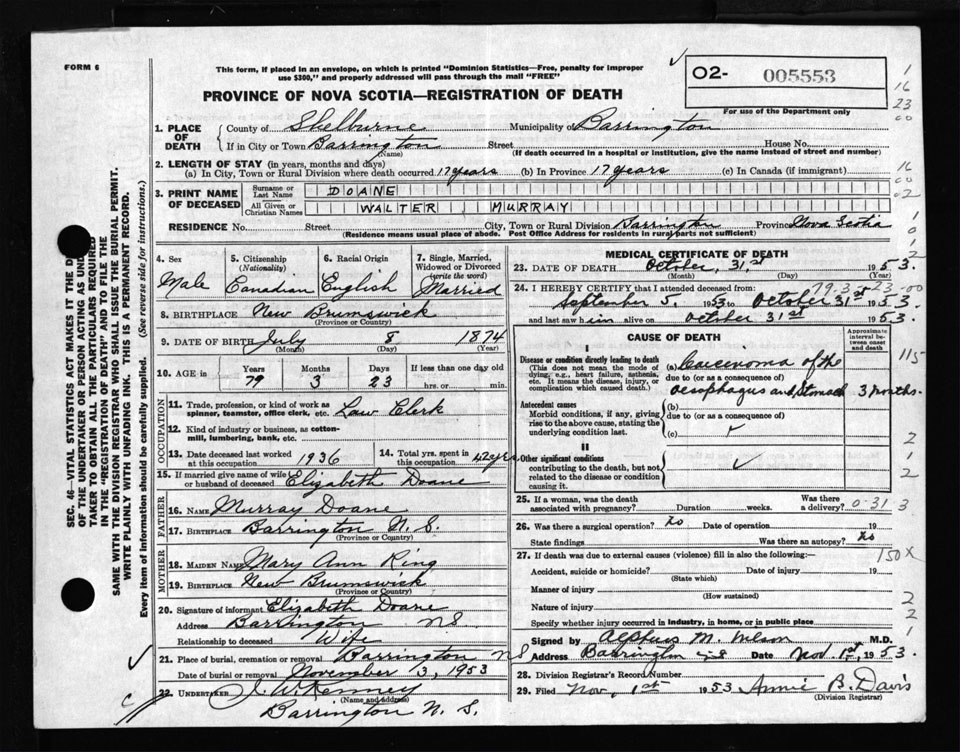 FORM 6
This form, if placed in an envelope, on which is printed "Dominion Statistics—Free, penalty for improper
use $300," and properly addressed will pass through the mail "FREE"
PROVINCE OF NOVA SCOTIA—REGISTRATION OF DEATH
O2- 005553
For use of the Department only
1
16
23
00
1. PLACE OF DEATH
County of Shelburne Municipality of Barrington
If in City or Town Barrington Street House No.
(Name) (If death occurred in a hospital or institution, give the name instead of street and number)
2. LENGTH OF STAY (in years, months and days)
(a) In City, Town or Rural Division where death occurred 17 years (b) In Province 17 years (c) In Canada (if immigrant)
3. PRINT NAME OF DECEASED
Surname or Last Name DOANE
All Given or Christian Names WALTER MURRAY
RESIDENCE No. Street City, Town or Rural Division Barrington Province Nova Scotia
(Residence means usual place of abode. Post Office Address for residents in rural parts not sufficient)
SEC. 46—VITAL STATISTICS ACT MAKES IT THE
OF THE UNDERTAKER OR PERSON ACTING AS
TAKER TO OBTAIN ALL THE PARTICULARS REQUIRED
IN THE "REGISTRATION OF DEATH" AND TO FILE THE
SAME WITH THE DIVISION REGISTRAR WHO SHALL ISSUE THE BURIAL PERMIT.
WRITE PLAINLY WITH UNFADING INK. THIS IS A PERMANENT RECORD.
Every item of information should be carefully supplied. (See reverse side for instructions.)
4. Sex
Male
5. Citizenship
(Nationality)
Canadian
6. Racial Origin
English
7. Single, Married, Widowed or Divorced
(write the word)
Married
8. BIRTHPLACE New Brunswick
(Province or Country)
9. DATE OF BIRTH July 8 1874
(Month) (Day) (Year)
10. AGE in Years Months Days If less than one day old
79 3 23 hrs. or min.
OCCUPATION
11. Trade, profession, or kind of work as
spinner, teamster, office clerk, etc. Law Clerk
12. Kind of industry or business, as cotton-
mill, lumbering, bank, etc.
13. Date deceased last worked
at this occupation 1936
14. Total yrs. spent in
this occupation 42 yrs
15. If married give name of wife
or husband of deceased Elizabeth Doane
FATHER
16. NAME Murray Doane
17. BIRTHPLACE Barrington N.S.
(Province or Country)
MOTHER
18. MAIDEN NAME Mary Ann Ring
19. BIRTHPLACE New Brunswick
(Province or Country)
20. Signature of informant Elizabeth Doane
Address Barrington NS.
Relationship to deceased Wife
21. Place of burial, cremation or removal Barrington NS
Date of burial or removal November 3, 1953
22. UNDERTAKER J. W. Kenney
(Name and address)
Barrington N. S.
MEDICAL CERTIFICATE OF DEATH
23. DATE OF DEATH October, 31.st 1953.
(Month) (Day) (Year)
24. I HEREBY CERTIFY that I attended deceased from:
September 5. 1953 to October 31st 1953.
and last saw him alive on October 31st 1953.
CAUSE OF DEATH
Approximate interval between onset and death
I
Disease or condition directly leading to death
(This does not mean the mode of dying, e.g., heart failure, asthenia, etc. It means the disease, injury, or complication which caused death.)
(a) Carcinoma of the
due to (or as a consequence of)
oesophagus and stomach 3 months.
Antecedent causes
Morbid conditions, if any, giving rise to the above cause, stating the underlying condition last.
(b)
due to (or as a consequence of)
(c)
II
Other significant conditions
contributing to the death, but not related to the disease or condition causing it.
25. If a woman, was the death
associated with pregnancy? Duration weeks. Was there a delivery?
0-31 3
26. Was there a surgical operation? No Date of operation 19
State findings Was there an autopsy? No
27. If death was due to external causes (violence) fill in also the following:
150 X
Accident, suicide or homicide? Date of injury 19
(State which)
Manner of injury
(How sustained)
Nature of injury
Specify whether injury occurred in industry, in home, or in public place
Signed by M.D.
Address Barrington NS Date Nov. 1st, 1953.
28. Division Registrar's Record Number
29. Filed Nov, 1st 1953 Annie B. Davis
(Division Registrar)